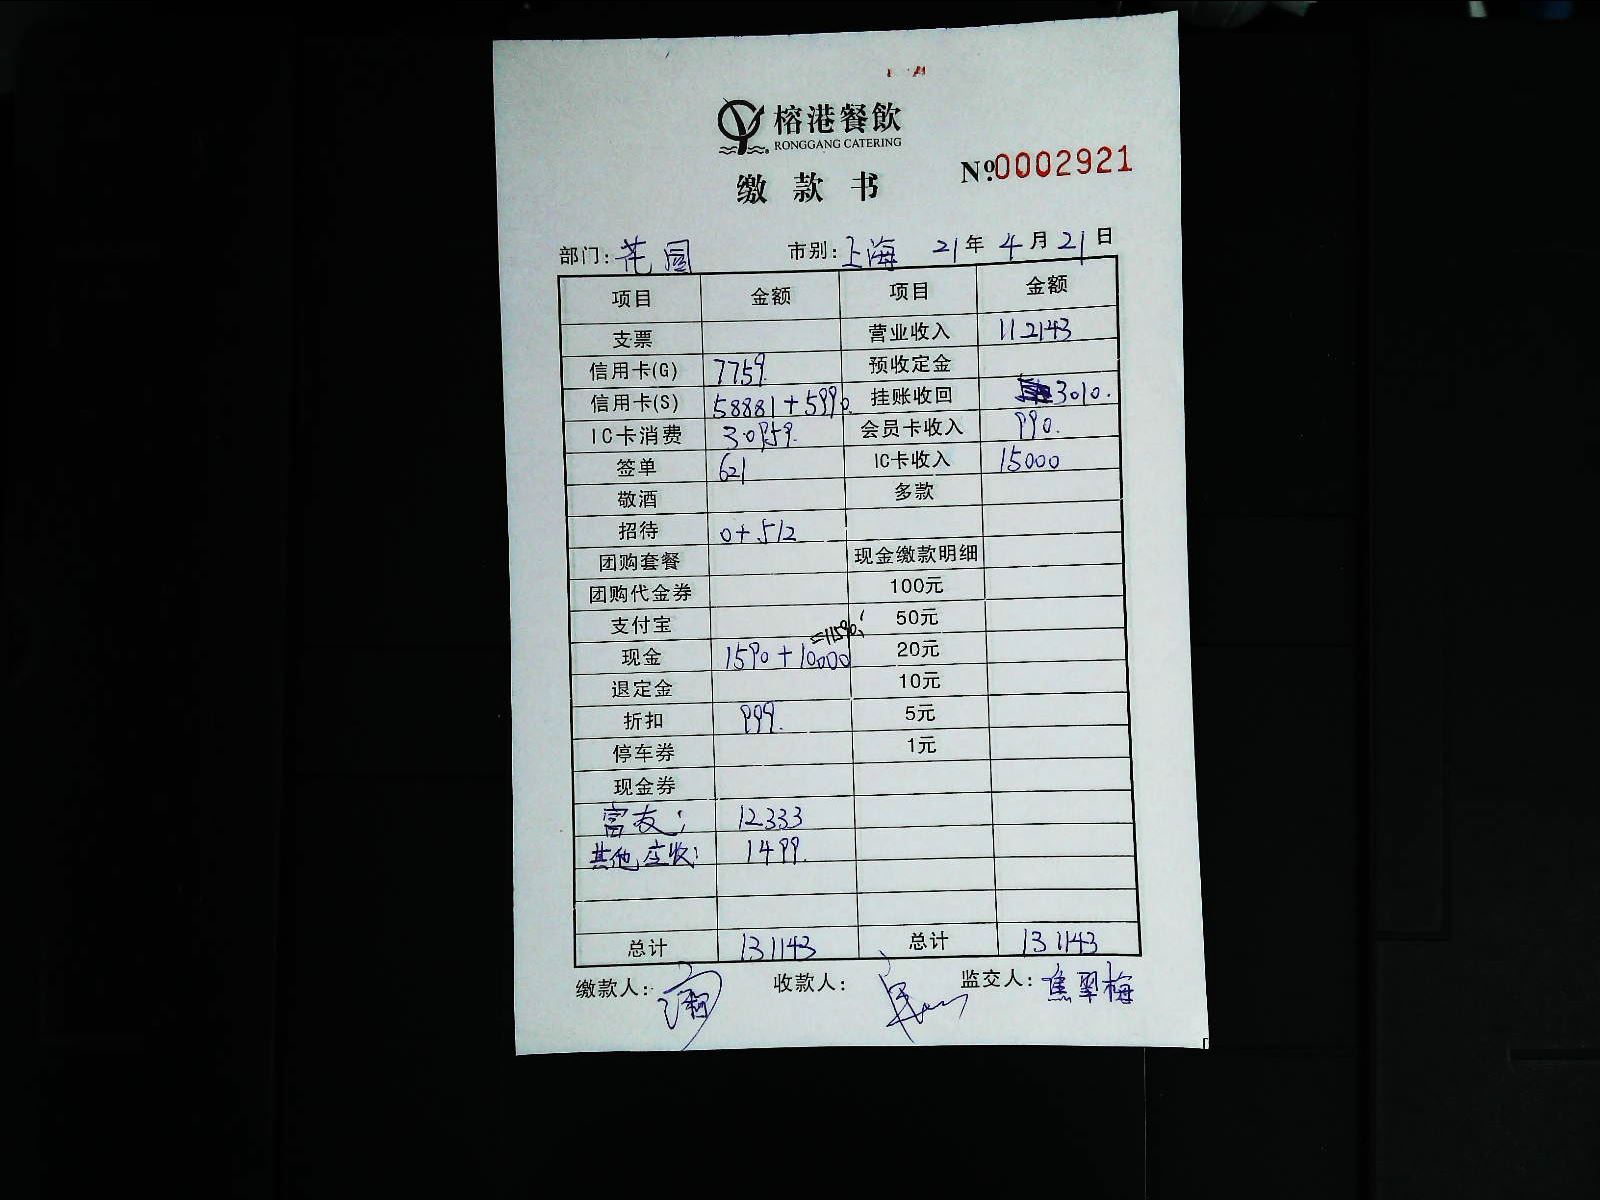 榕港餐飲
RONGGANG CATERING
缴款书
№0002921
部门: 花园 市别: 上海 21年4月21日
项目 金额 项目 金额
支票 营业收入 112143
信用卡(G) 7759. 预收定金
信用卡(S) 58881+5990. 挂账收回 3010.
IC卡消费 30959. 会员卡收入 990.
签单 621 IC卡收入 15000
敬酒 多款
招待 0+512
团购套餐 现金缴款明细
团购代金券 100元
支付宝 50元
=11590.
现金 1590+10000 20元
退定金 10元
折扣 999. 5元
停车券 1元
现金券
富友: 12333
其他应收: 1499.
总计 131143 总计 131143
缴款人: 收款人: 监交人: 焦翠梅